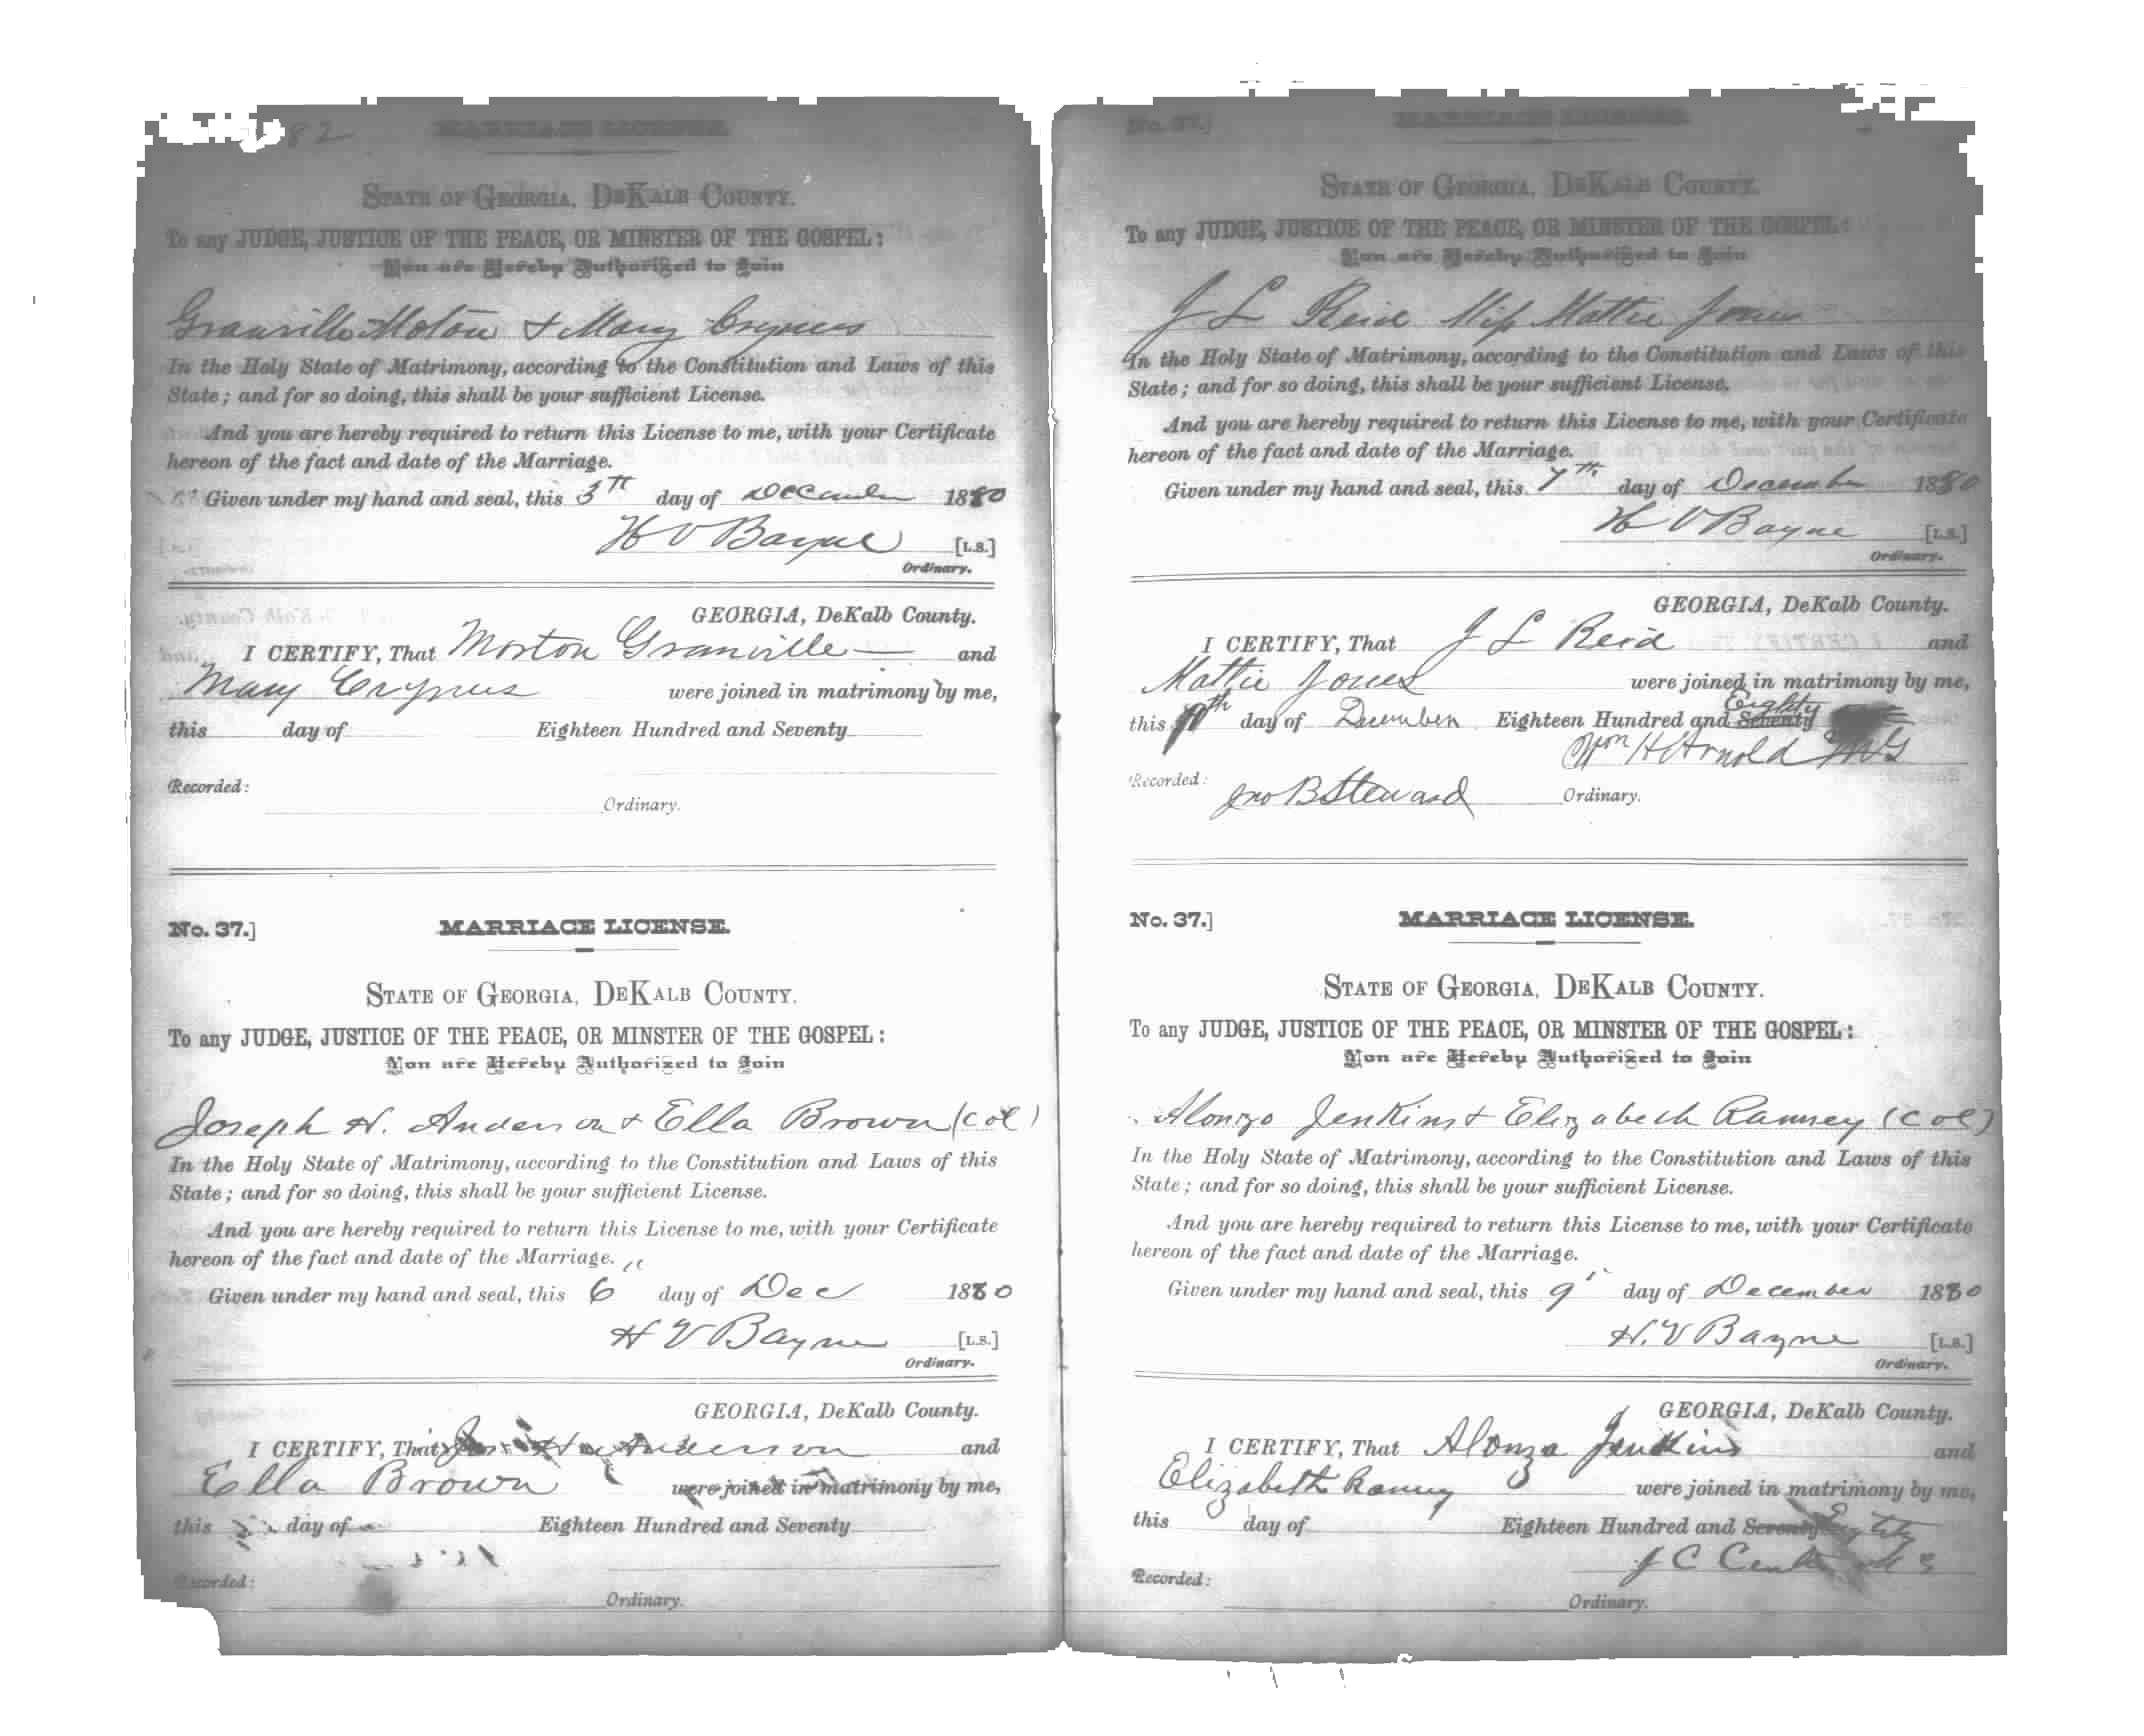 82
MARRIAGE LICENSE.
STATE OF GEORGIA, DEKALB COUNTY.
To any JUDGE, JUSTICE OF THE PEACE, OR MINSTER OF THE GOSPEL:
You are Hereby Authorized to Join
Granville Moton & Mary Crymes
In the Holy State of Matrimony, according to the Constitution and Laws of this
State; and for so doing, this shall be your sufficient License.
And you are hereby required to return this License to me, with your Certificate
hereon of the fact and date of the Marriage.
Given under my hand and seal, this 3th day of December 1880
H V Bayne [L.S.]
Ordinary.
GEORGIA, DeKalb County.
I CERTIFY, That Morton Granville and
Mary Crymes were joined in matrimony by me,
this day of Eighteen Hundred and Seventy
Recorded:
Ordinary.
No. 37.] MARRIAGE LICENSE.
STATE OF GEORGIA, DEKALB COUNTY.
To any JUDGE, JUSTICE OF THE PEACE, OR MINSTER OF THE GOSPEL:
You are Hereby Authorized to Join
Joseph H. Anderson & Ella Brown (col)
In the Holy State of Matrimony, according to the Constitution and Laws of this
State; and for so doing, this shall be your sufficient License.
And you are hereby required to return this License to me, with your Certificate
hereon of the fact and date of the Marriage.
Given under my hand and seal, this 6 day of Dec 1880
H V Bayne [L.S.]
Ordinary.
GEORGIA, DeKalb County.
I CERTIFY, That H Anderson and
Ella Brown were joined in matrimony by me,
this day of Eighteen Hundred and Seventy
Recorded:
Ordinary.
No. 37.] MARRIAGE LICENSE.
STATE OF GEORGIA, DEKALB COUNTY.
To any JUDGE, JUSTICE OF THE PEACE, OR MINSTER OF THE GOSPEL:
You are Hereby Authorized to Join
J L Reid Miss Mattie Jones
In the Holy State of Matrimony, according to the Constitution and Laws of this
State; and for so doing, this shall be your sufficient License.
And you are hereby required to return this License to me, with your Certificate
hereon of the fact and date of the Marriage.
Given under my hand and seal, this 7th day of December 1880
H V Bayne [L.S.]
Ordinary.
GEORGIA, DeKalb County.
I CERTIFY, That J L Reid and
Mattie Jones were joined in matrimony by me,
this day of December Eighteen Hundred and Seventy Eighty
Wm H Arnold MG
Recorded: Jno B Steward Ordinary.
No. 37.] MARRIAGE LICENSE.
STATE OF GEORGIA, DEKALB COUNTY.
To any JUDGE, JUSTICE OF THE PEACE, OR MINSTER OF THE GOSPEL:
You are Hereby Authorized to Join
Alonzo Jenkins & Elizabeth Ramsey (col)
In the Holy State of Matrimony, according to the Constitution and Laws of this
State; and for so doing, this shall be your sufficient License.
And you are hereby required to return this License to me, with your Certificate
hereon of the fact and date of the Marriage.
Given under my hand and seal, this 9 day of December 1880
H. V Bayne [L.S.]
Ordinary.
GEORGIA, DeKalb County.
I CERTIFY, That Alonza Jenkins and
Elizabeth Ramsy were joined in matrimony by me,
this day of Eighteen Hundred and Seventy
J C
Recorded:
Ordinary.